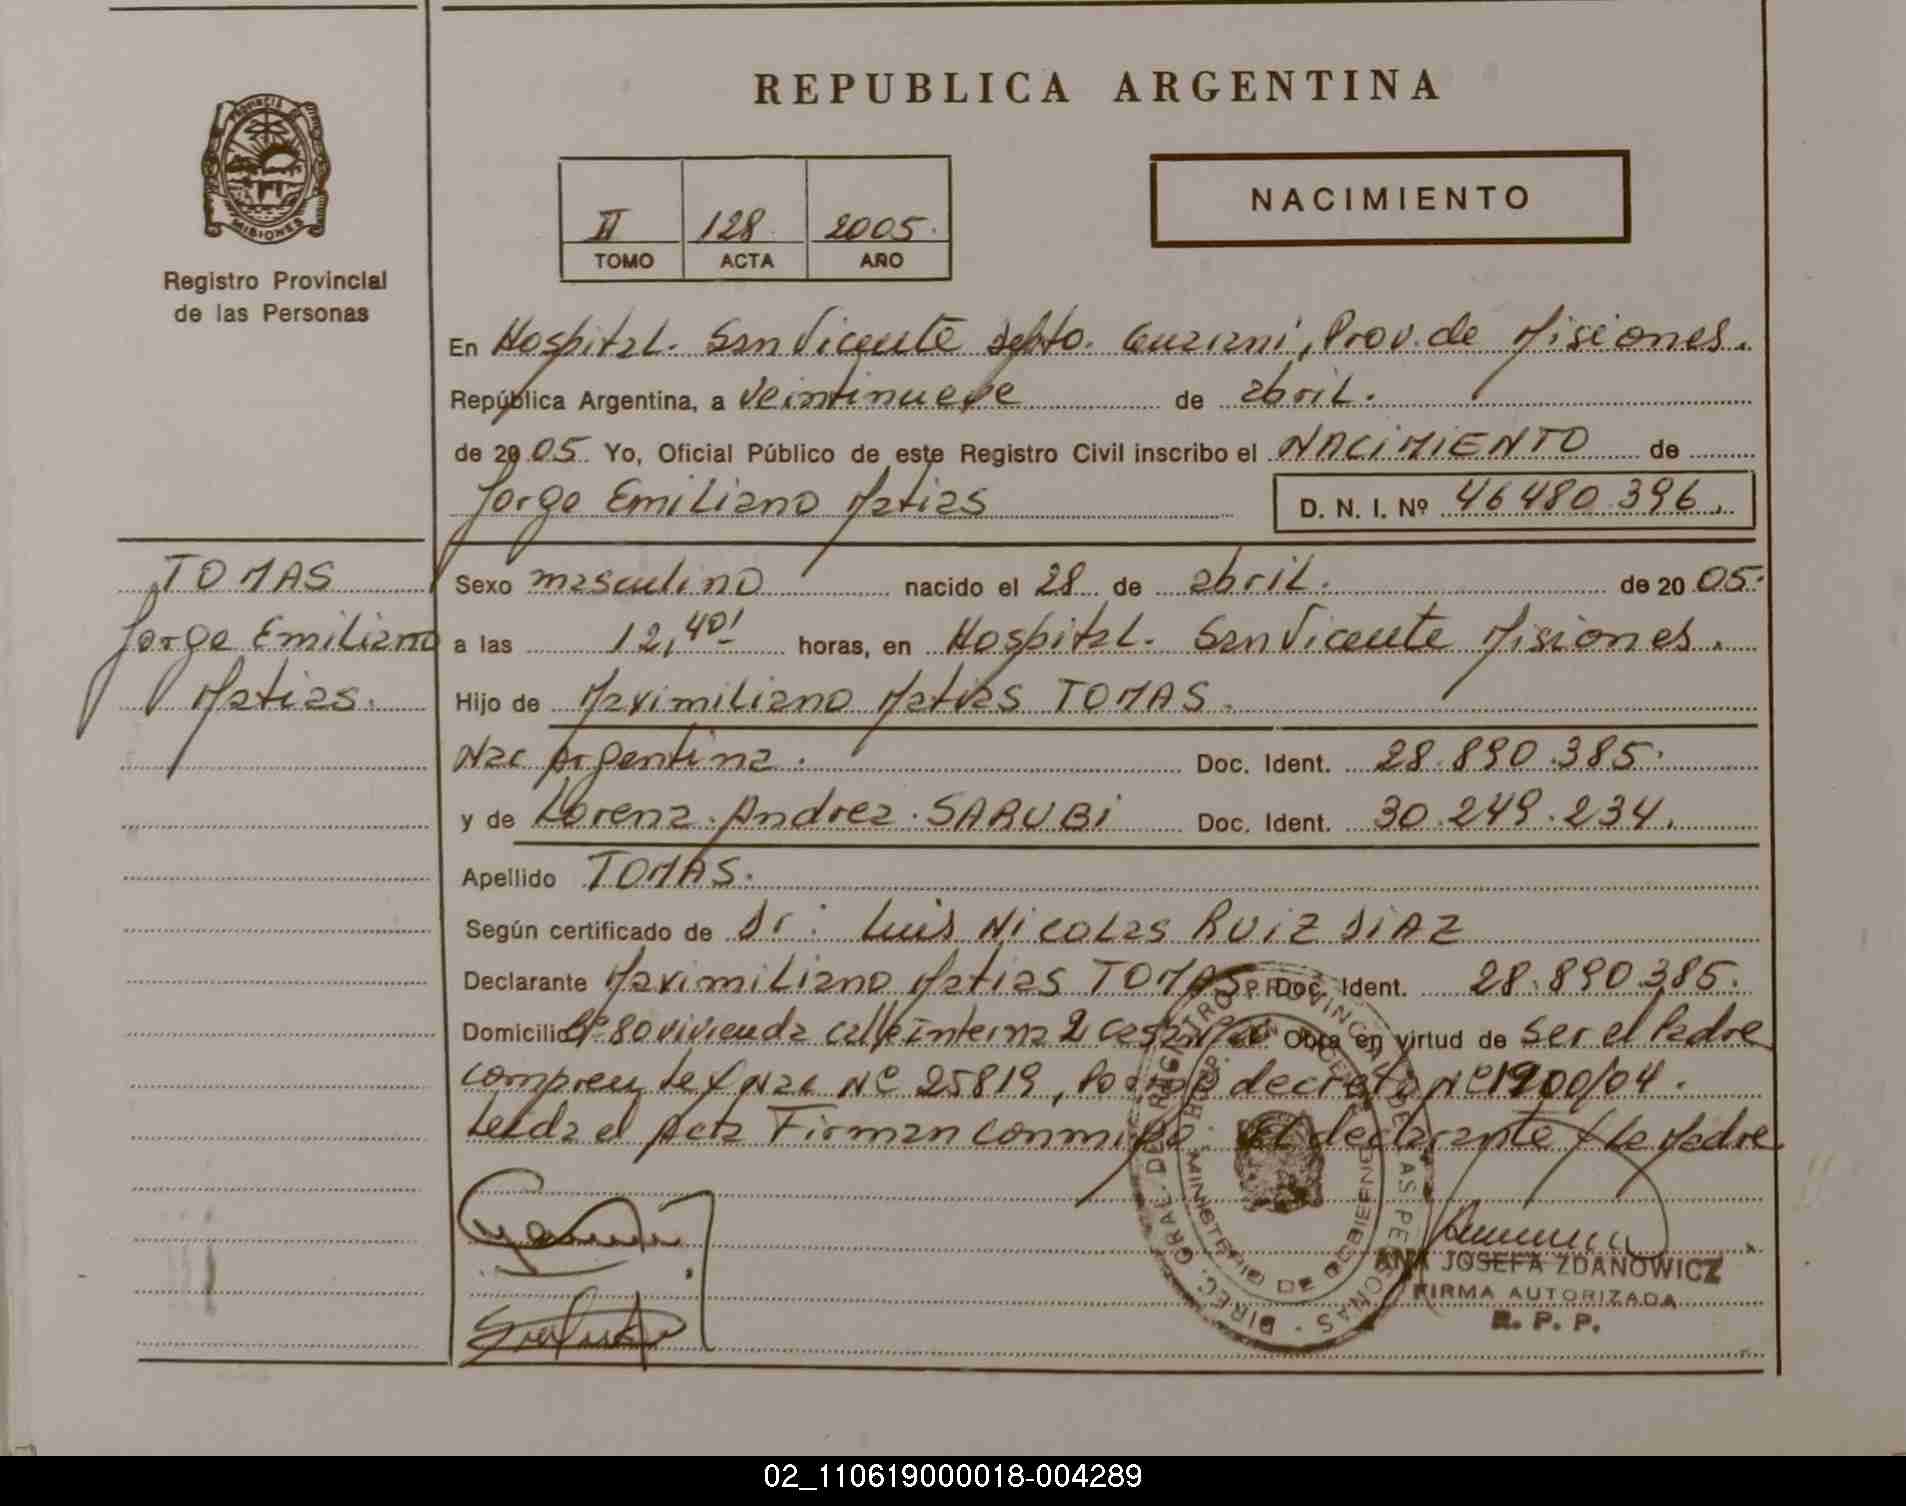 REPUBLICA ARGENTINA
PROVINCIA DE MISIONES
Registro Provincial
de las Personas
II 128 2005.
TOMO ACTA AÑO
NACIMIENTO
En Hospital. San Vicente Depto. Guarani, Prov. de Misiones.
República Argentina, a veintinueve de abril.
de 2005 Yo, Oficial Público de este Registro Civil inscribo el NACIMIENTO de
Jorge Emiliano Matias D. N. I. Nº 46480.396.
TOMAS
Jorge Emiliano
Matias.
Sexo masculino nacido el 28 de abril. de 2005.
a las 12,40' horas, en Hospital. San Vicente Misiones.
Hijo de Maximiliano Matias TOMAS.
Nac Argentina. Doc. Ident. 28.890.385.
y de Lorena Andrea SARUBI Doc. Ident. 30.249.234.
Apellido TOMAS.
Según certificado de Dr: Luis Nicolas RUIZ DIAZ
Declarante Maximiliano Matias TOMAS Doc. Ident. 28.890.385.
Domicilio Bº 80 vivienda calle interna 2 casa Obra en virtud de ser el Padre
Nac Nº 25819, decreto Nº 1900/04.
Leida el Acta Firman conmigo el declarante y la Madre
DIREC. GRAL. DE REGISTRO PROVINCIAL DE LAS PERSONAS
MINISTERIO DE GOBIERNO
ANA JOSEFA ZDANOWICZ
FIRMA AUTORIZADA
R. P. P.
02_110619000018-004289